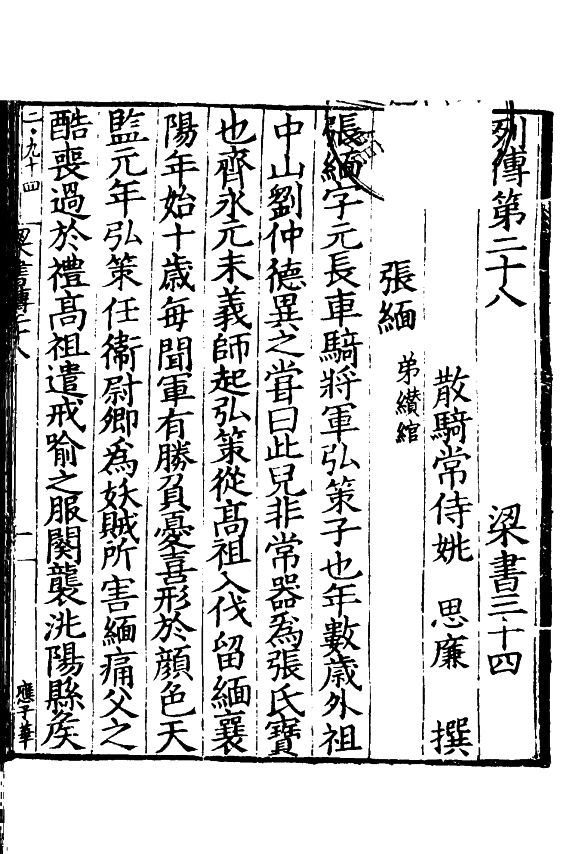 列傳第二十八　梁書三十四
散騎常侍姚　思廉　撰
張緬　弟纘綰
張緬字元長車騎將軍弘策子也年數歲外祖
中山劉仲德異之嘗曰此兒非常器為張氏寶
也齊永元末義師起弘策從髙祖入伐留緬襄
陽年始十歲每聞軍有勝負憂喜形於顔色天
監元年弘策任衞尉卿為妖賊所害緬痛父之
酷喪過於禮髙祖遣戒喻之服闋襲洮陽縣矦
二・九十四
梁書傳二十八
一
應子華